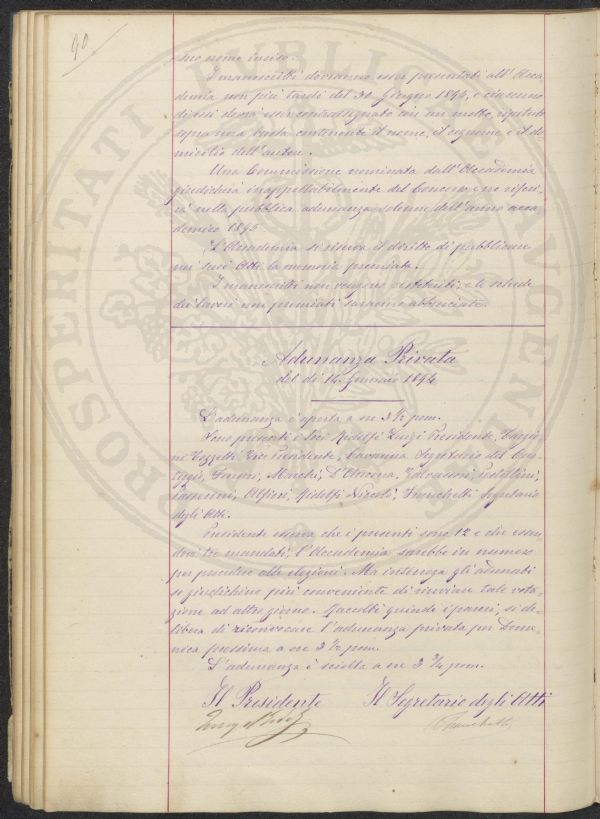 90
suo nome inciso.
I manoscritti dovranno esser presentati all'Acca-
demia non più tardi del 30 Giugno 1894, e ciascuno
di essi dovrà esser contrassegnato con un motto, ripetuto
sopra una busta contenente il nome, il cognome e il do-
micilio dell'autore.
Una Commissione nominata dall'Accademia
giudicherà inappellabilmente del Concorso e ne riferi-
rà nella pubblica adunanza solenne dell'anno acca-
demico 1895
L'Accademia si riserva il diritto di pubblicare
nei suoi Atti la memoria premiata.
I manoscritti non vengono restituiti, e le schede
dei lavori non premiati saranno abbruciate.
Adunanza Privata
del dì 14 Gennaio 1894
L'adunanza è aperta a ore 3 1/2 pom.
Sono presenti i Soci Ridolfi Luigi Presidente, Targio-
ni Tozzetti Vice Presidente, Caruana Segretario del Car-
teggio, Marchi, D'Ancona,
Passerini, Alfieri, Ridolfi Niccolò, Franchetti Segretario
degli Atti.
Presidente osserva che i presenti sono 12 e che essen-
dovi tre mandati, l'Accademia sarebbe in numero
per procedere alle elezioni. Ma interroga gli adunati
se giudichino più conveniente di rinviare tale vota-
zione ad altro giorno. Raccolti quindi i pareri, si de-
libera di riconvocare l'adunanza privata per Dome-
nica prossima a ore 2 1/2 pom.
L'adunanza è sciolta a ore 3 3/4 pom.
Il Presidente Il Segretario degli Atti
Franchetti
PROSPERITATI PUBLICAE AUGENDAE